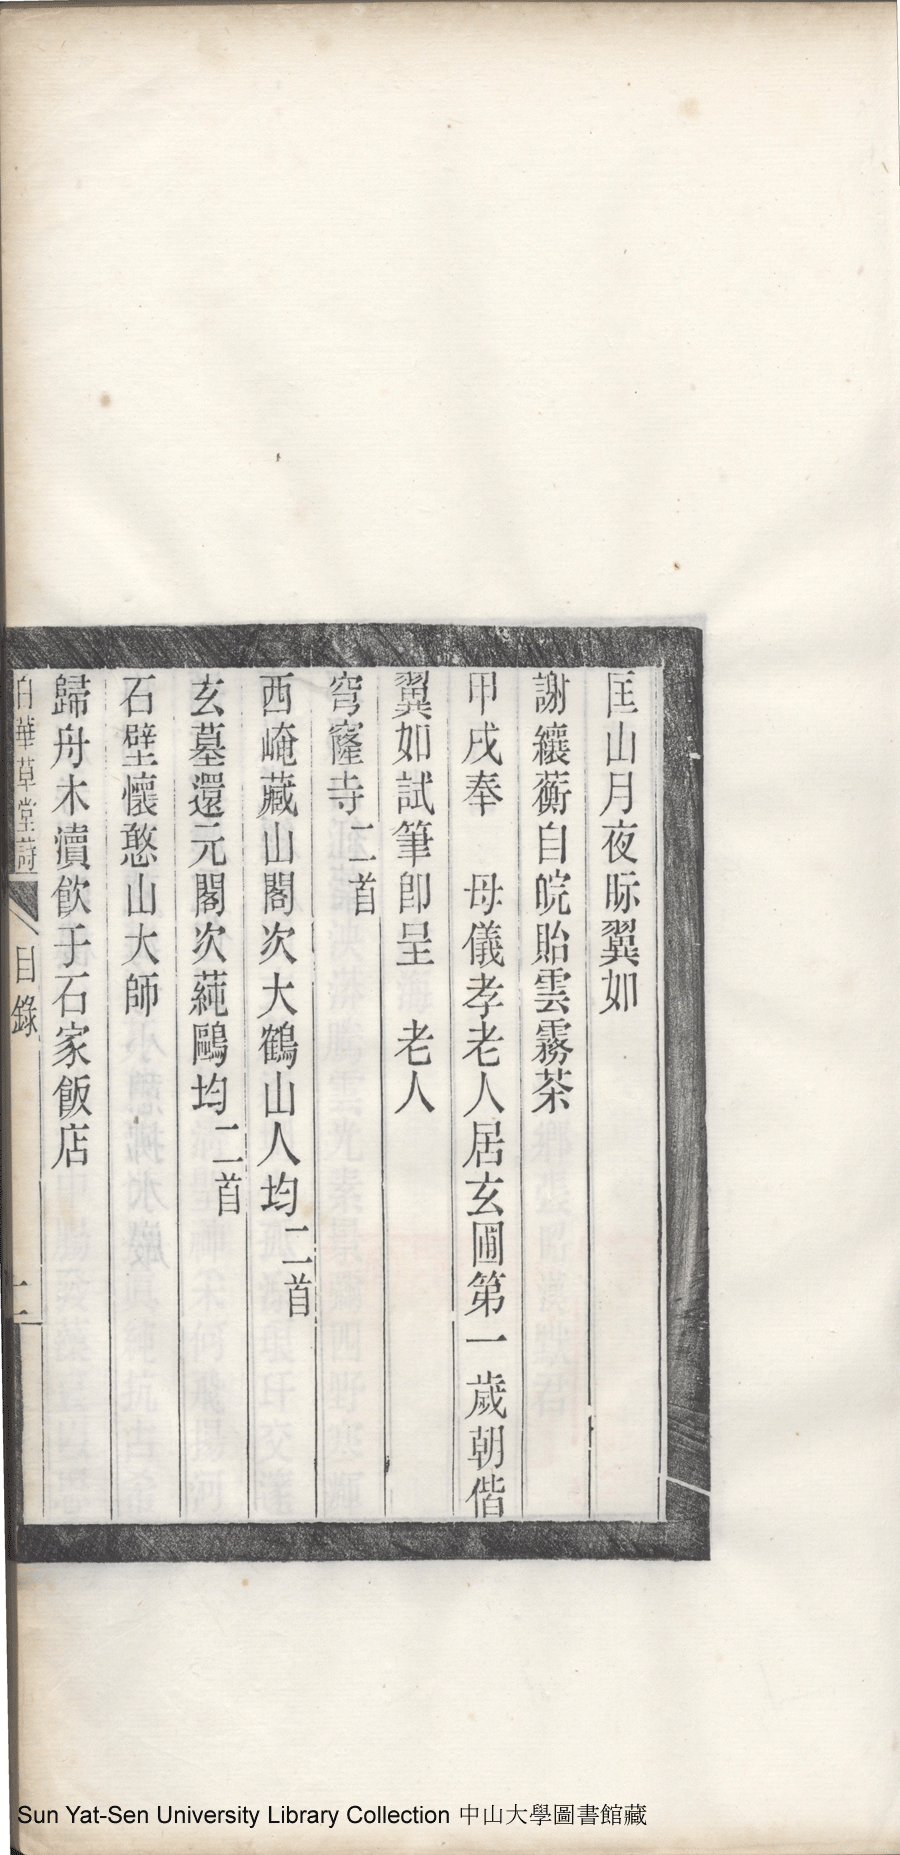 匡山月夜眎翼如
謝纕蘅自皖貽雲霧茶
甲戌奉　母儀孝老人居玄圃第一歲朝偕
翼如試筆卽呈　老人
穹窿寺二首
西崦藏山閣次大鶴山人均二首
玄墓還元閣次蒓鷗均二首
石壁懷憨山大師
歸舟木瀆飮于石家飯店
白華草堂詩　目錄　二
Sun Yat-Sen University Library Collection 中山大學圖書館藏